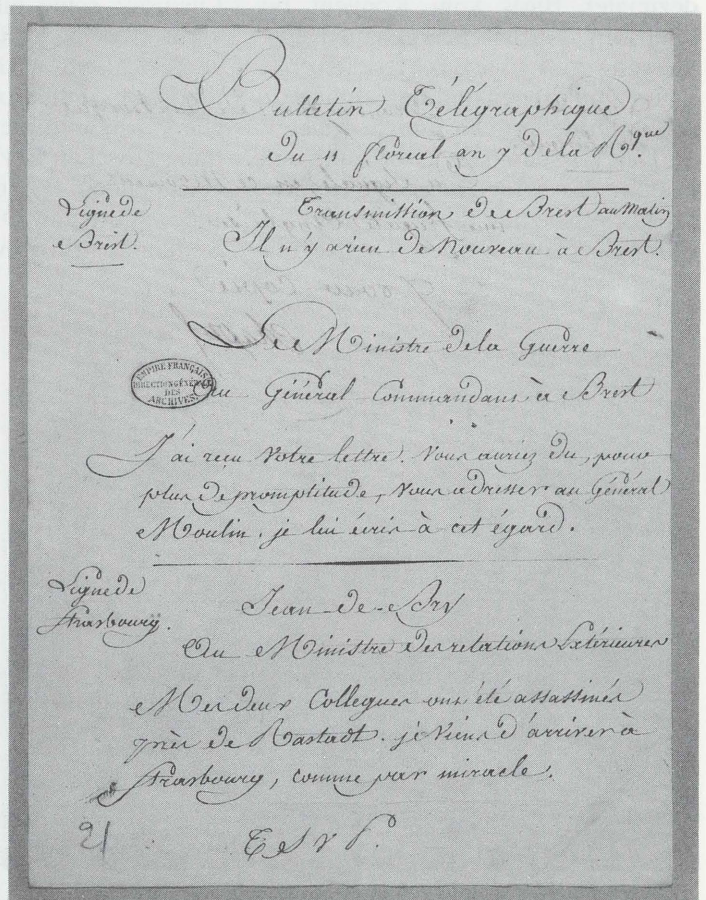 Bulletin Télégraphique
Du 11 floreal an 7 de la Rque.
Ligne de
Brest.
Transmission de Brest au Matin
Il n'y a rien de Nouveau à Brest.
Le Ministre de la Guerre
EMPIRE FRANÇAIS
DIRECTION GÉNÉRALE
DES
ARCHIVES
Au Général Commandant à Brest
J'ai reçu Votre lettre. Vous auriez du, pour
plus de promptitude, Vous adresser au Général
Moulin. je lui écris à cet égard.
Ligne de
Strasbourg.
Jean-de-Bry
Au Ministre des relations Extérieures
Mes deux Collegues ont été assassinés
près de Rastadt. je Viens d'arriver à
Strasbourg, comme par miracle.
T S V P.